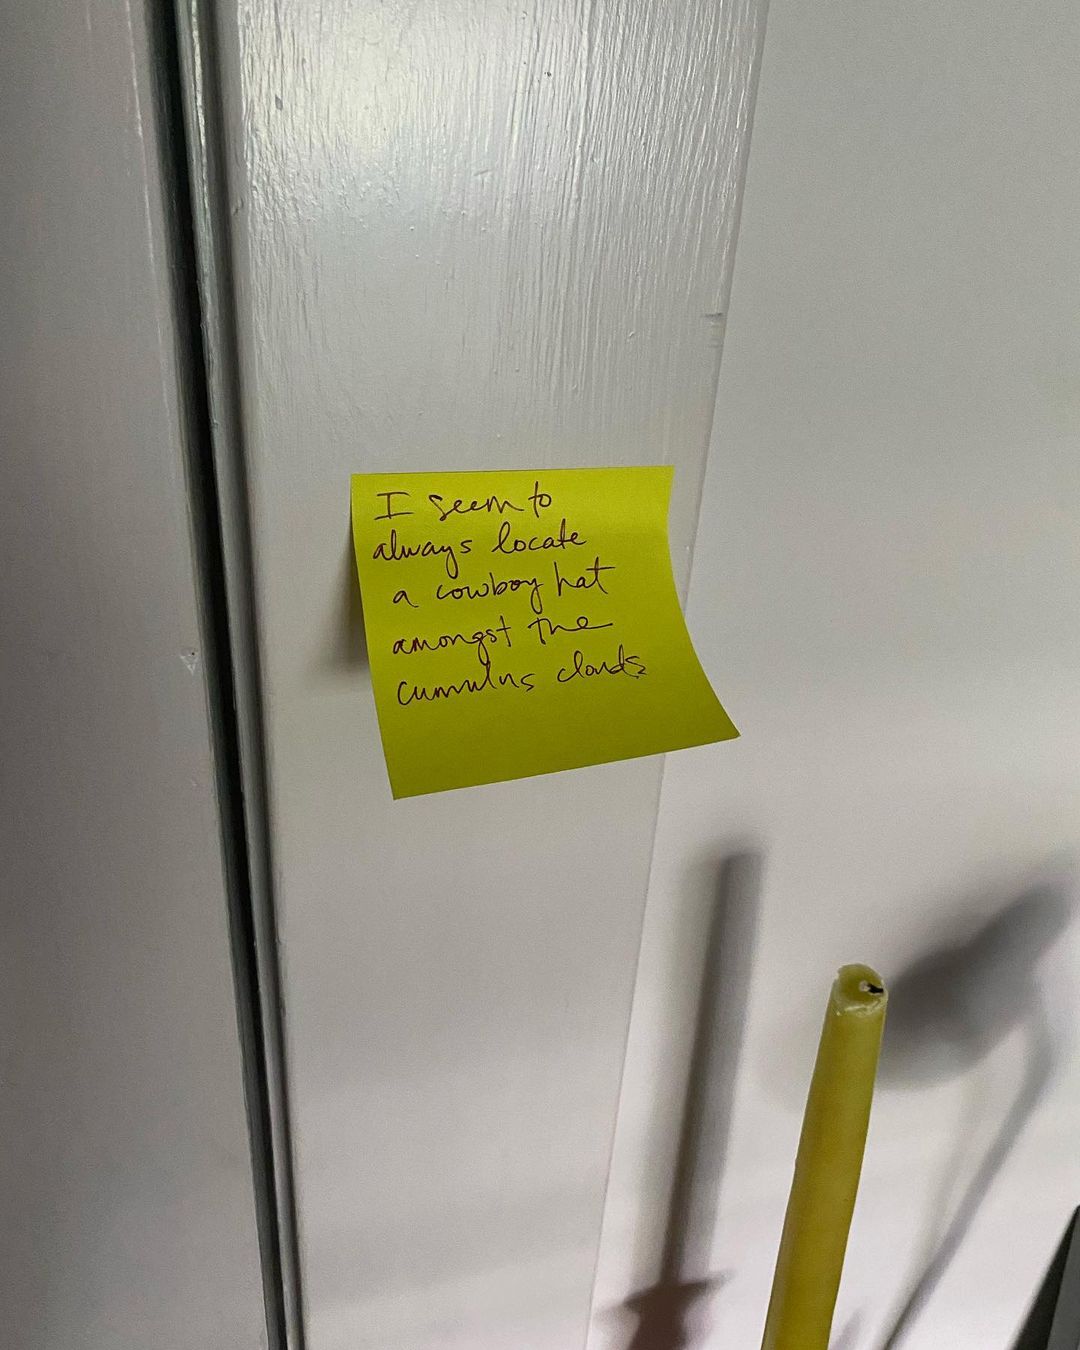 I seem to
always locate
a cowboy hat
amongst the
cumulus clouds